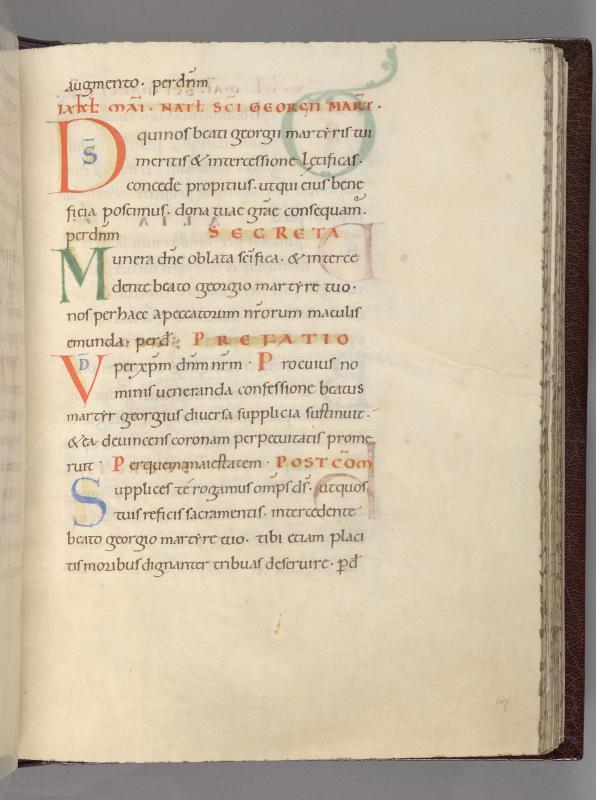 augmento. perdnm
ixkł mai. natł sci georgii mart.
Ds quinos beati georgii martyris tui
meritis & intercessione lętificas.
concede propitius. utqui eius bene
ficia poscimus. dona tuae grae consequam̄.
perdnm SECRETA
Munera dne oblata scifica. & interce
dente beato georgio martyre tuo.
nos perhaec apeccatorum nrorum maculis
emunda. perd. PREFATIO
VD perxpm dnm nrm. Procuius no
minis ueneranda confessione beatus
martyr georgius diuersa supplicia sustinuit.
& ea deuincens coronam perpetuitatis prome
ruit. Perquem maiestatem. POSTCOM
Supplices te rogamus omps ds. utquos
tuis reficis sacramentis. intercedente
beato georgio martyre tuo. tibi etiam placi
tis moribus dignanter tribuas deseruire. pd